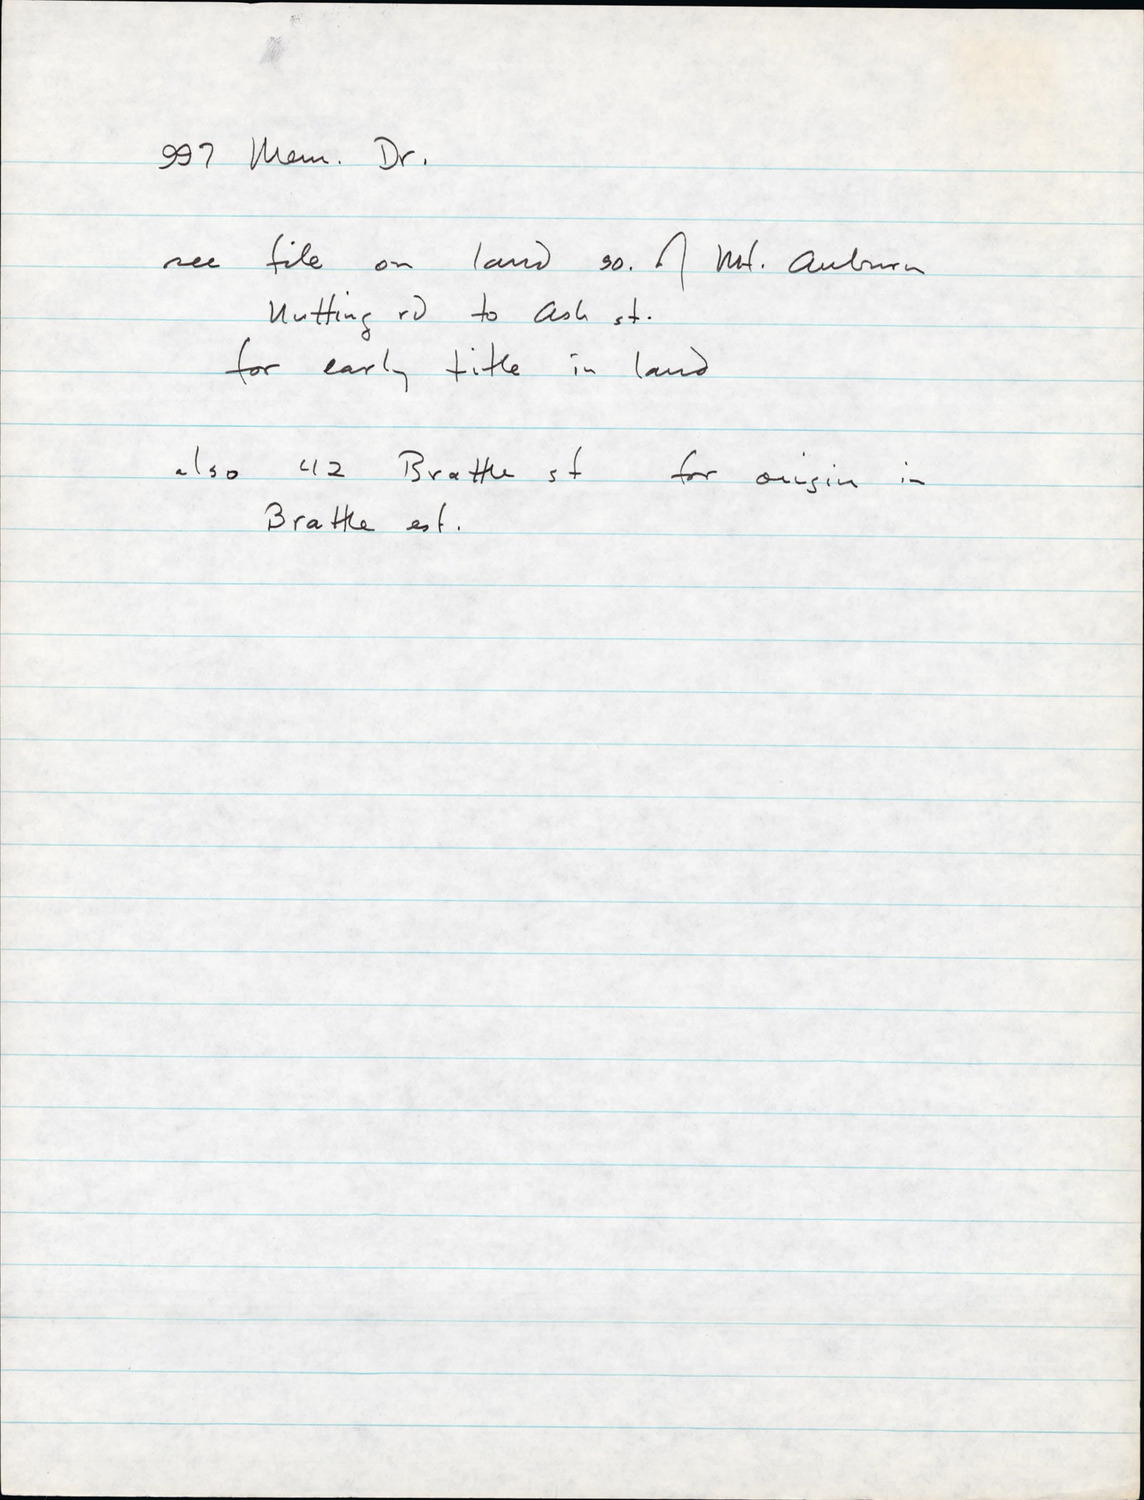 997 Mem. Dr.
see file on land so. of Mt. Auburn
Nutting rd to Ash st.
for early title in land
also 42 Brattle st for origin in
Brattle est.